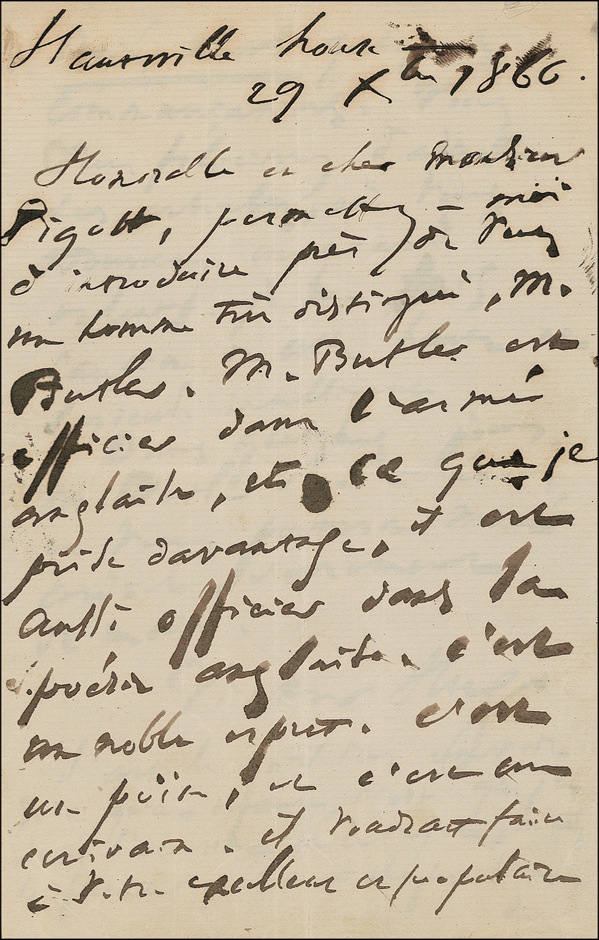 Hauteville house
29 Xbre 1866.
Honorable et cher monsieur
Pigott, permettez-moi
d'introduire près de vous
un homme très distingué, M.
Butler. M. Butler est
officier dans l'armée
anglaise, et, ce que je
prise davantage, il est
aussi officier dans la
poésie anglaise. c'est
un noble esprit. c'est
un poëte, et c'est un
écrivain. il voudrait faire
à votre excellent et populaire